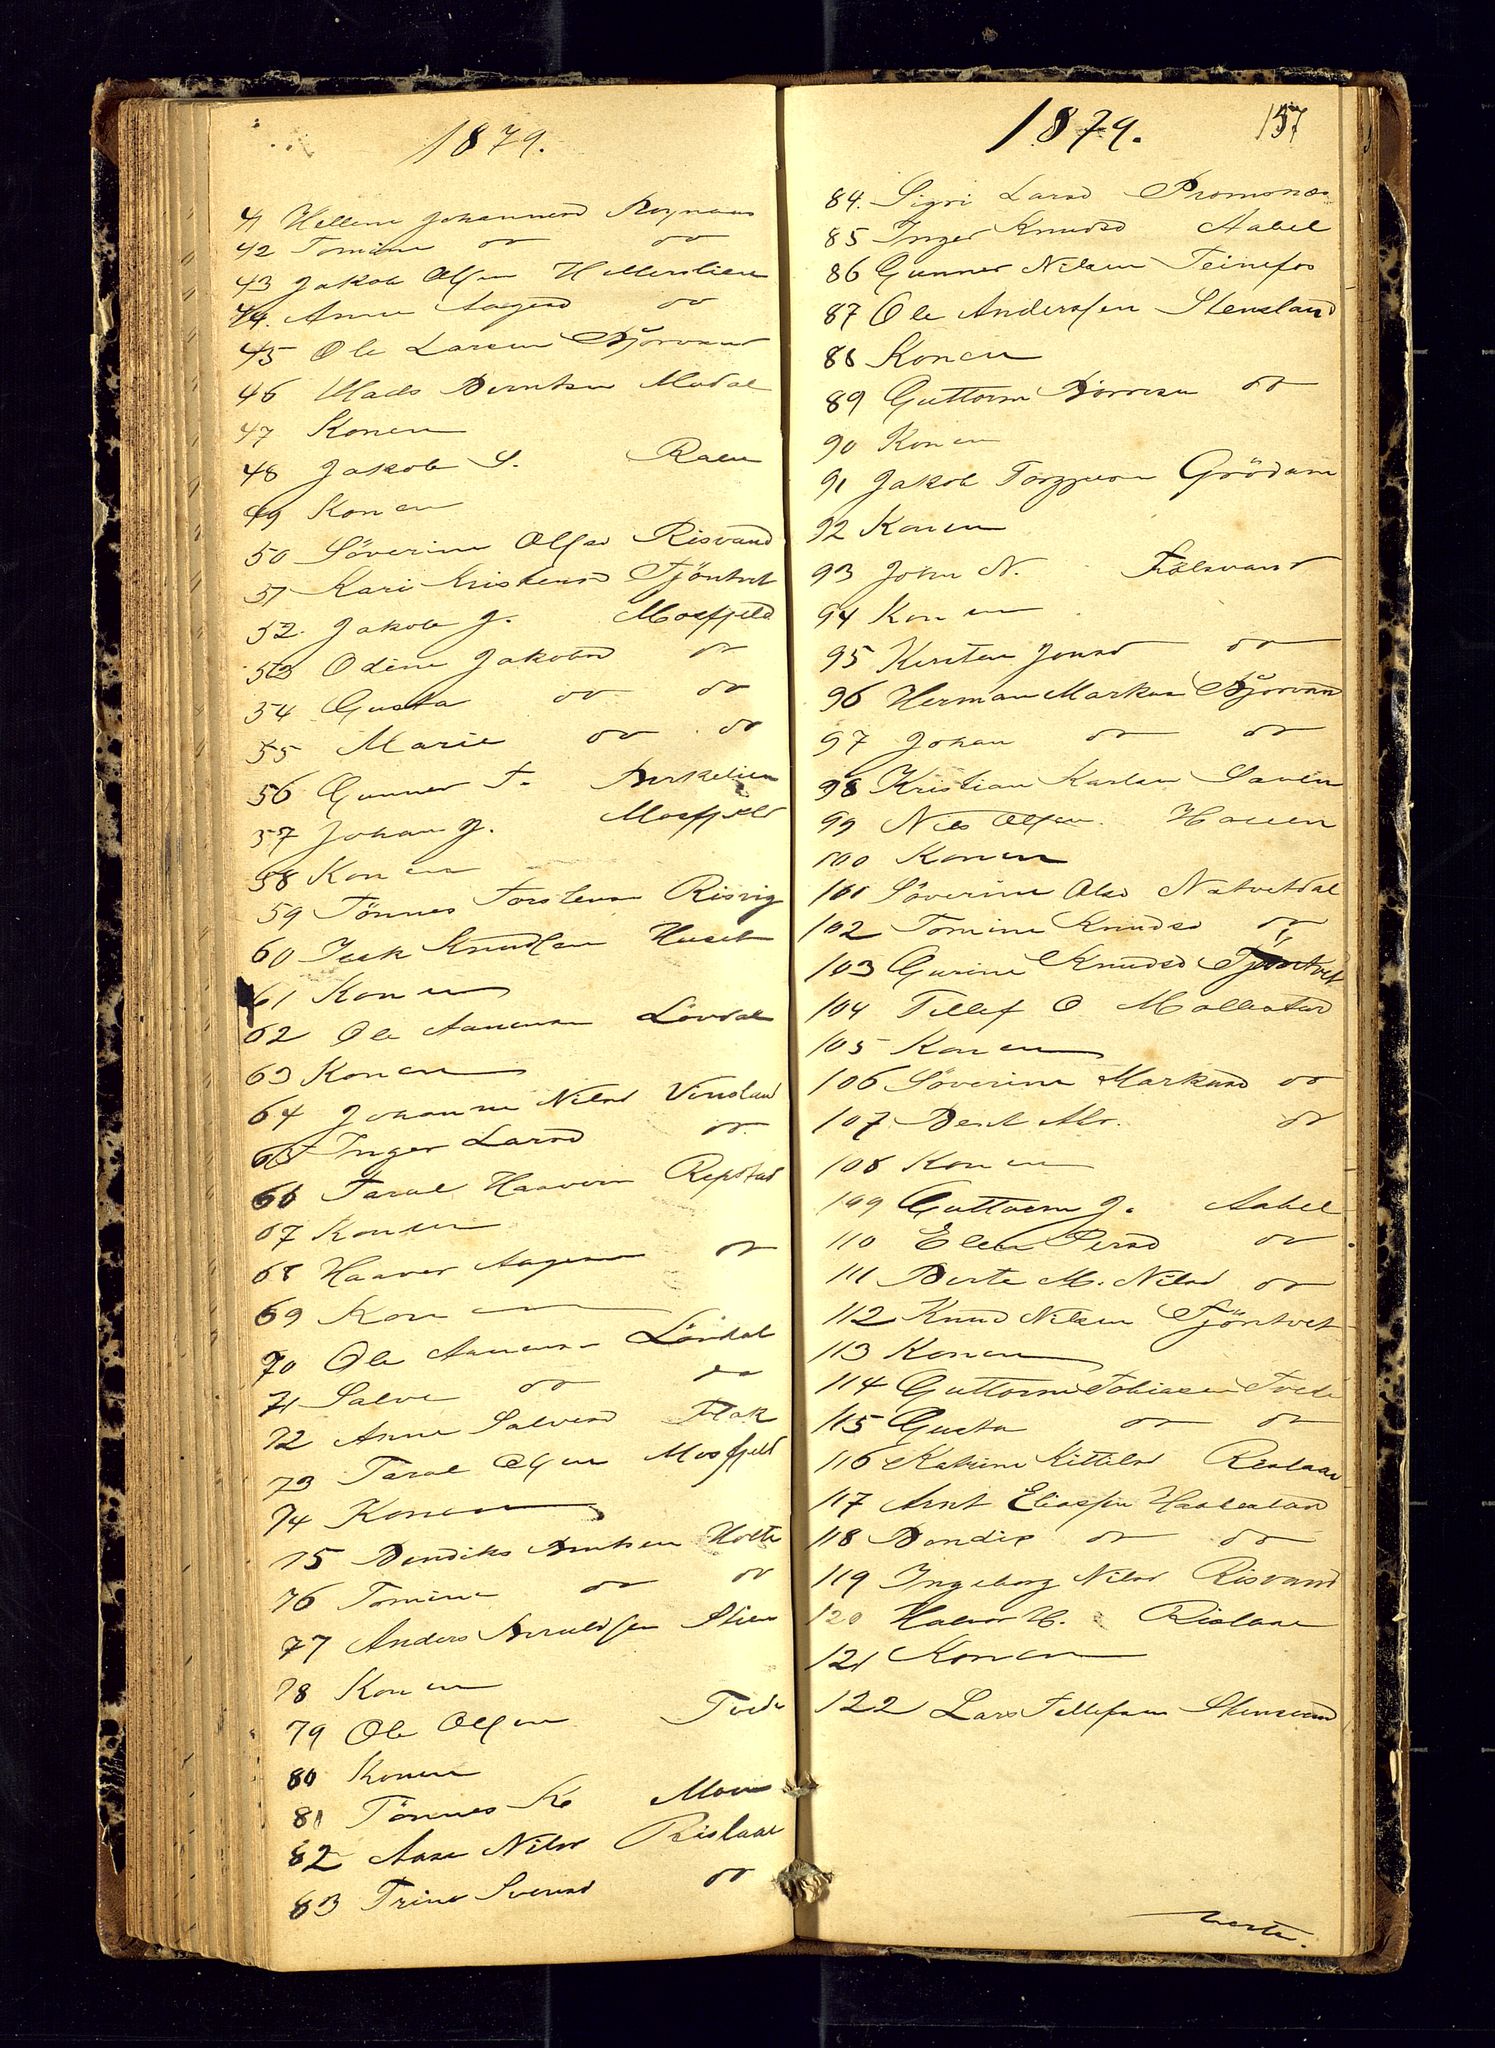 1879.
41 Hellene Johannesd Røynaas
42 Tomine do do
43 Jakob Olsen Hellerslien
44. Anne Aagesd do
45 Ole Larsen Bjorvand
46 Mads Berntsen Modal
47 Konen
48 Jakob S. Raen
49 Konen
50 Söverine Olsd Risvand
51 Kari Kristensd Tjöntvet
52. Jakob J. Mosfjeld
53 Odine Jakobsd do
54 Gusta do do
55 Marie do do
56 Gunner T. Birkelien
57 Johan J. Mosfjeld
58 Konen
59 Tönnes Torstens Risvig
60 Isak Knudsen Huset
61 Konen
62 Ole Aanensen Lövdal
63 Konen
64 Johanne Nilsd Vinsland
65 Inger Larsd do
66 Taral Haavors Repstad
67 Konen
68 Haavor Aagesen do
69 Konen
70 Ole Aanensen Lövdal
71 Salve do do
72 Anne Salvesd Flak
73 Taral Olsen Mosfjeld
74 Konen
75 Bendiks Berntsen Holte
76 Tomine do do
77 Anders Arnuldsen Stien
78 Konen
79 Ole Olsen Tvede
80 Konen
81 Tönnes K Moen
82 Aase Nilsd Rislaae
83 Trine Svensd do
1879. 157
84. Sigri Larsd Bromsnes
85 Inger Knudsd Aabel
86 Gunner Nilsen Teinefos
87 Ole Andersen Stensland
88 Konen
89 Guttorm Börresen do
90 Konen
91 Jakob Torjusen Grödum
92 Konen
93 John N. Fölsvand
94 Konen
95 Kirsten Jonsd do
96 Herman Markus Bjorvand
97 Johan do do
98 Kristian Karlsen Saven
99 Nils Olsen. Hauen
100 Konen
101 Söverine Olsd Natvetdal
102 Tomine Knudsd do
103 Gurine Knudsd Tjöntvet
104 Tellef O Mollestad
105 Konen
106 Söverine Markusd do
107 Bent Alv. do
108 Konen
109 Guttorm J. Aabel
110 Elen Persd do
111 Berte M. Nilsd do
112 Knud Nilsen Tjöntvet
113 Konen
114 Guttorm Tobiasen Tvede
115 Gusta do do
116 Katrine Kittilsd Rislaae
117 Arnt Eliassen Haabesland
118 Bendix do do
119 Ingeborg Nilsd Risvand
120 Halvor H. Rislaae
121 Konen
122 Lars Tellefsen Stensvand
verte.